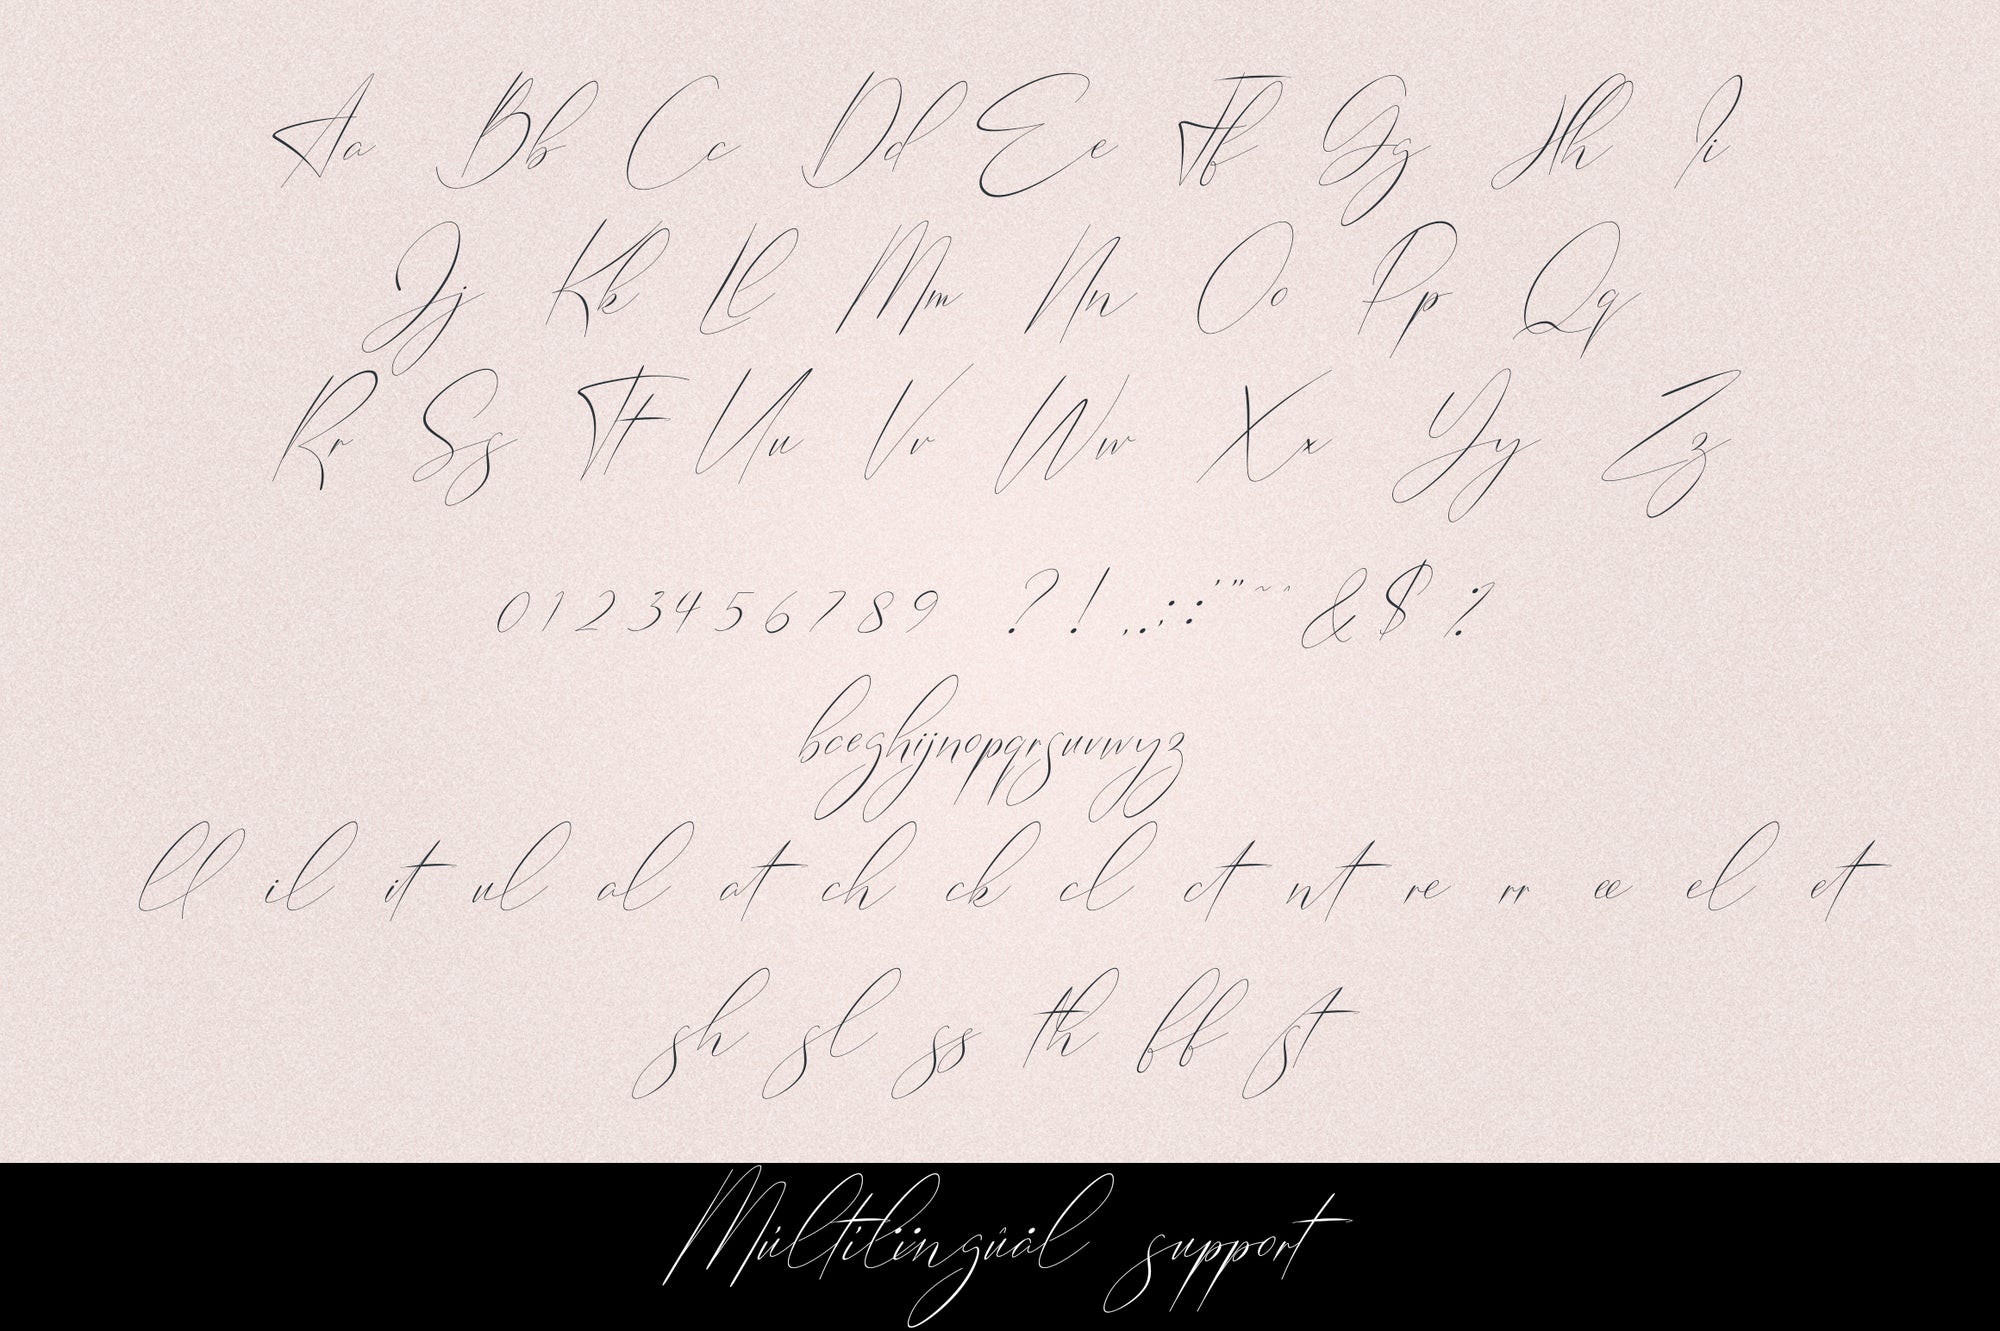 Aa Bb Cc Dd Ee Ff Gg Hh Ii
Jj Kk Ll Mm Nn Oo Pp Qq
Rr Ss Tt Uu Vv Ww Xx Yy Zz
0 1 2 3 4 5 6 7 8 9 ? ! , . ; : ' " ~ ^ & $ %
bceghijnopqrsuvwyz
ll il it ul al at ch ck cl ct nt re rr ee el et
sh sl ss th ff st
Múltílïingûàl support